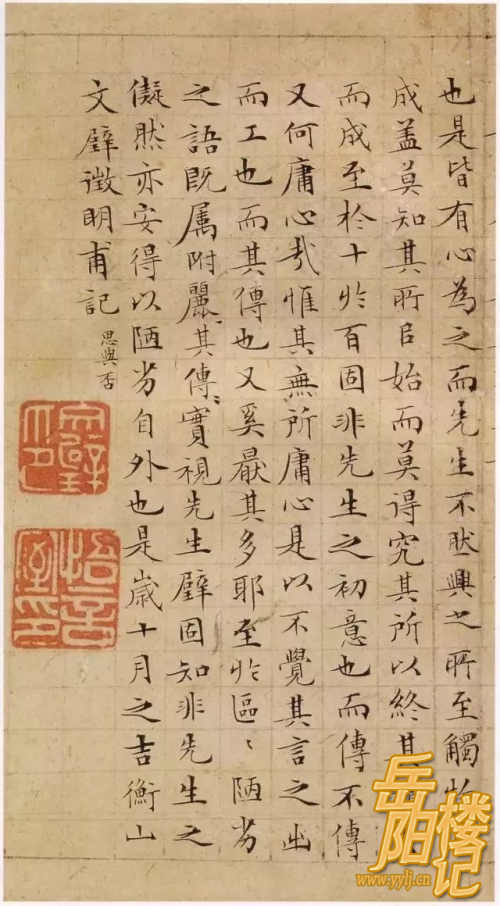 也是皆有心為之而先生不肰興之所至觸物
成盖莫知其所㠯始而莫得究其所以終其
而成至於十於百固非先生之初意也而傳不傳
又何庸心哉惟其無所庸心是以不覺其言之出
而工也而其傳也又奚厭其多耶至於區〻陋劣
之語既属附麗其傳〻實視先生璧固知非先生之
儗然亦安得以陋劣自外也是歲十月之吉衡山
文璧徵明甫記
思與否
文璧印
悟言室印
岳阳楼记
www.yylj.cn